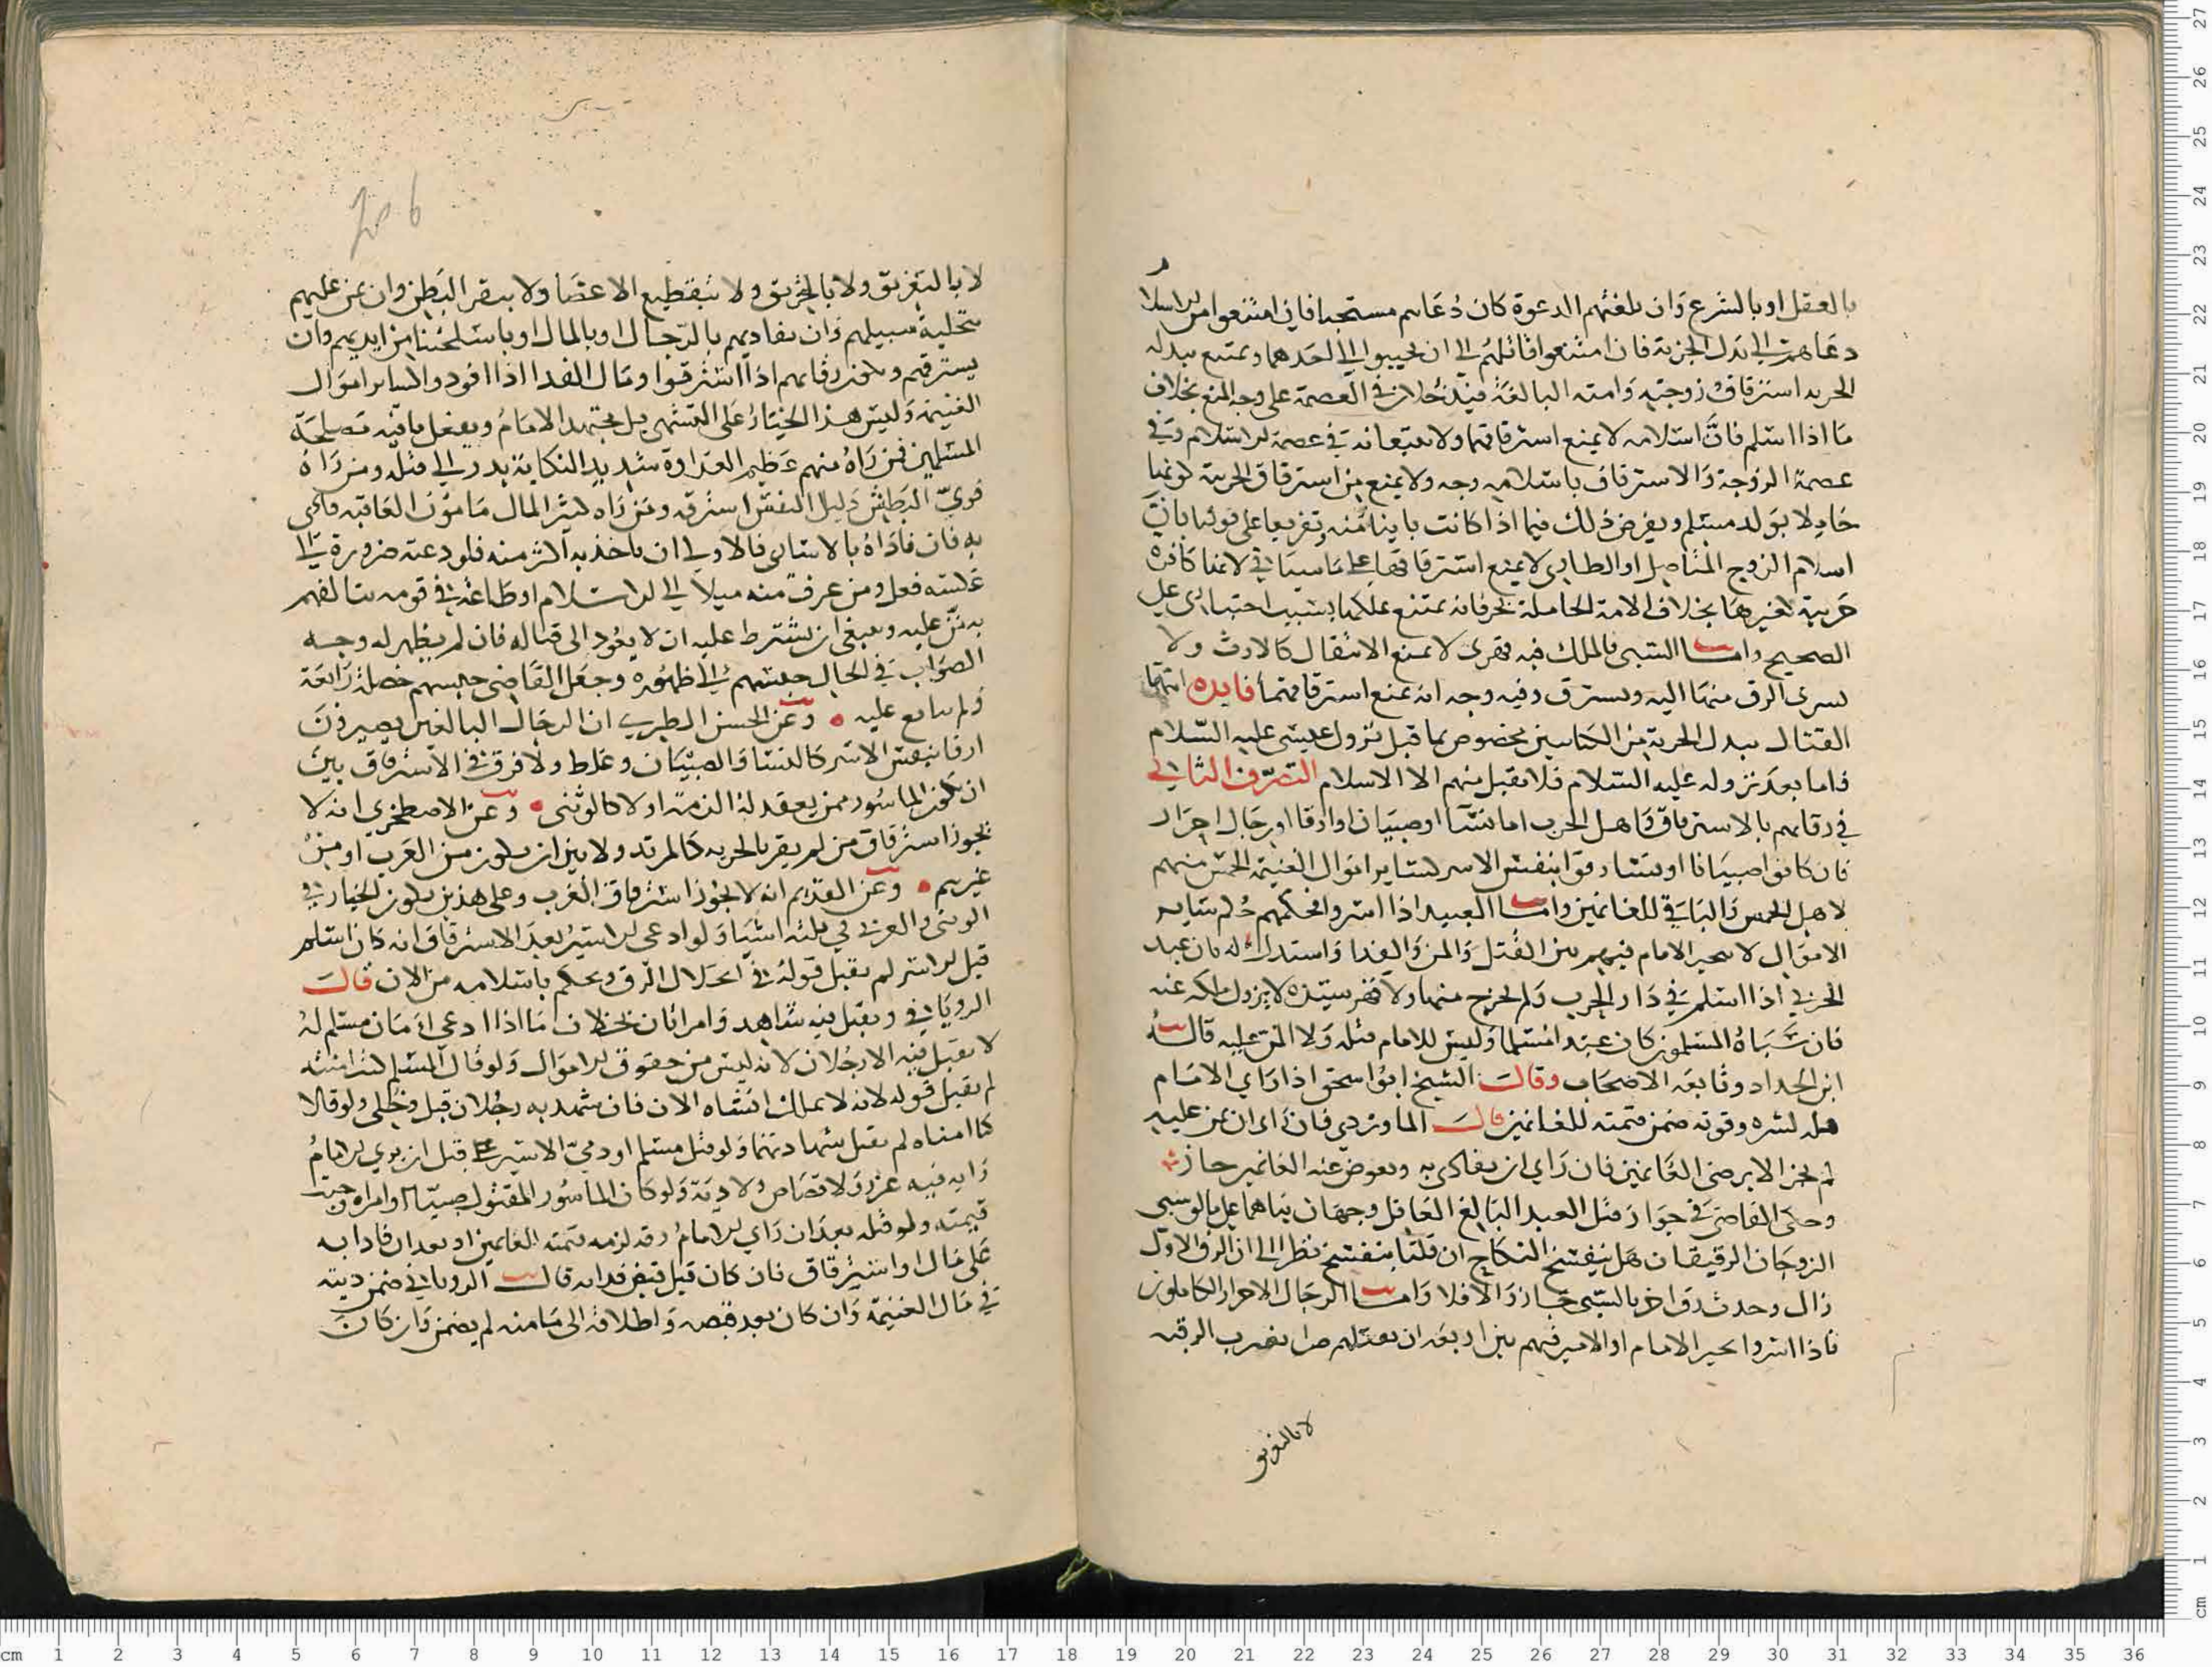 بالعقل او بالشرع وان بلغتهم الدعوة كان دعاهم مستحبا فان امتنعوا من الاسلا
دعاهم الى بذل الجزية فان امتنعوا قاتلهم الى ان يجيبوا الى احدهما ويمتنع ببذله
الجزيه استرقاق زوجته وامته البالغة فيدخلان في العصمة على وجه المنع بخلاف
ما اذا اسلم فان اسلامه لا يمنع استرقاقها ولا يتبعانه في عصمة الاسلام وفي
عصمة الزوجة والاسترقاق باسلامه وجه ولا يمنع من استرقاق الحربية كونها
حاملا بولد مسلم ويفرض ذلك فيما اذا كانت باينا منه وتفريعا على قولنا بان
اسلام الزوج الاصلي او الطاري لا يمنع استرقاقها على ما سياتي لانها كافره
حربية لغيرها بخلاف الامة الحاملة بحر فانه يمتنع تملكها بسبب اختياري على
الصحيح واما السبي فالملك فيه قهرى لا يمنع الانتقال كالارث ولا
يسرى الرق منها اليه ويسترق وفيه وجه انه يمنع استرقاقهما فايده انتها
القتال ببذل الجزية من الكتابيين مخصوص بما قبل نزول عيسى عليه السلام
فاما بعد نزوله عليه السلام فلا يقبل منهم الا الاسلام التصرف الثاني
في رقابهم بالاسترقاق فاهل الحرب اما نسا او صبيان او ارقا او رجال احرار
فان كانوا صبيانا او نسا رقوا بنفس الاسر كساير اموال الغنيمة الخمس منهم
لاهل الخمس والباقي للغانمين واما العبيد اذا اسروا فحكمهم حكم ساير
الاموال لا يتخير الامام فيهم بين القتل والمن والفدا واستدل له بان عبد
الحربي اذا اسلم في دار الحرب ولم يخرج منها ولا قهر سيده لا يزول ملكه عنه
فان سباه المسلمون كان عبدا مسلما وليس للامام قتله ولا المن عليه قاله
ابن الحداد وتابعه الاصحاب وقال الشيخ ابو اسحق اذا راي الامام
قتله لشره وقوته ضمن قيمته للغانمين قال الماوردي فان راى ان يمن عليه
لم يجز الا برضى الغانمين فان راي ان يفادى به ويعوض عنه الغانمين جاز
وحكى القاضي في جواز قتل العبد البالغ العاقل وجهان بناهما على ما لو سبى
الزوجان الرقيقان هل ينفسخ النكاح ان قلنا ينفسخ نظرا الى ان الرق الاول
زال وحدث رق اخر بالسبي جاز والا فلا واما الرجال الاحرار الكاملون
فاذا اسروا تخير الامام او الامير فيهم بين اربعة ان يقتلهم صبرا بضرب الرقبه
لا بالتغريق
لا بالتغريق ولا بالتحريق ولا بتقطيع الاعضا ولا ببقر البطن وان يمن عليهم
بتخلية سبيلهم وان يفاديهم بالرجال او بالمال او باسلحتنا من ايديهم وان
يسترقهم ويكون رقابهم اذا استرقوا ومال الفدا اذا فودوا كساير اموال
الغنيمة وليس هذا الخيار على التشهي بل يجتهد الامام ويفعل ما فيه مصلحة
المسلمين فمن راه منهم عظيم العداوة شديد النكاية بدر الى قتله ومن راه
قوي البطش ذليل النفس استرقه ومن راه كثير المال مامون العاقبه فادى
به فان فاداه بالاسارى فالاولى ان ياخذ به اكثر منه فلو دعته ضرورة الى
عكسه فعل ومن عرف منه ميلا الى الاسلام او طاعة في قومه يتالفهم
به من عليه وينبغي ان يشترط عليه ان لا يعود الى قتاله فان لم يظهر له وجه
الصواب في الحال حبسهم الى ظهوره وجعل القاضي حبسهم خصلة رابعة
ولم يتابع عليه وعن الحسن الطبري ان الرجال البالغين يصيرون
ارقا بنفس الاسر كالنسا والصبيان وغلط ولا فرق في الاسترقاق بين
ان يكون الماسور ممن يعقد له الذمة او لا كالوثني وعن الاصطخري انه لا
يجوز استرقاق من لم يقر بالجزيه كالمرتد ولا بين ان يكون من العرب او من
غيرهم وعن القديم انه لا يجوز استرقاق العرب وعلى هذين يكون الخيار في
الوثني والعربي في ثلثه اشيا ولو ادعى الاسير بعد الاسترقاق انه كان اسلم
قبل الاسر لم يقبل قوله في احلال الرق ويحكم باسلامه من الان قال
الروياني ويقبل فيه شاهد وامراتان بخلاف ما اذا ادعى امان مسلم له
لا يقبل فيه الا رجلان لانه ليس من حقوق الاموال ولو قال المسلم كنت امنته
لم يقبل قوله لانه لا يملك انشاه الان فان شهد به رجلان قبل وخلي ولو قالا
كنا امناه لم يقبل شهادتهما ولو قتل مسلم او ذمي الاسير قبل ان يري الامام
رايه فيه عزر ولا قصاص ولا دية ولو كان الماسور المقتول صبيا او امراه وجبت
قيمته ولو قتله بعد ان راي الامام رقه لزمه قيمته الغانمين او بعد ان فادا به
على مال او استرقاق فان كان قبل قبض فدايه قال الروياني ضمن ديته
في مال الغنيمة وان كان بعد قبضه واطلاقه الى مامنه لم يضمن وان كان